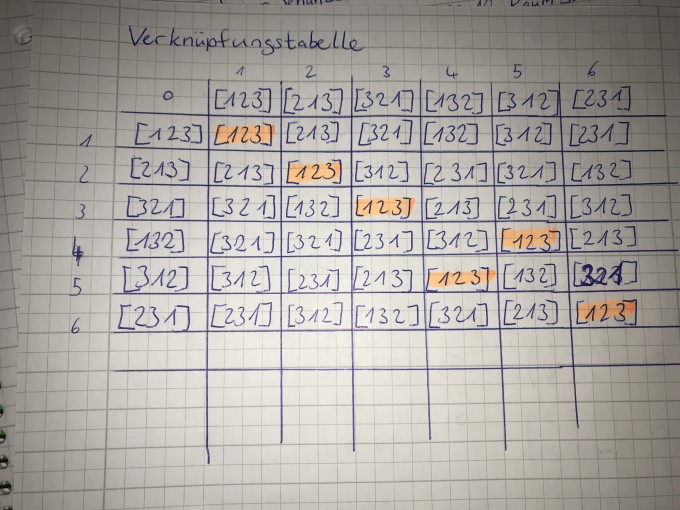 Verknüpfungstabelle
1 2 3 4 5 6
o [123] [213] [321] [132] [312] [231]
1 [123] [123] [213] [321] [132] [312] [231]
2 [213] [213] [123] [312] [231] [321] [132]
3 [321] [321] [132] [123] [213] [231] [312]
4 [132] [321] [321] [231] [312] [123] [213]
5 [312] [312] [231] [213] [123] [132] [321]
6 [231] [231] [312] [132] [321] [213] [123]